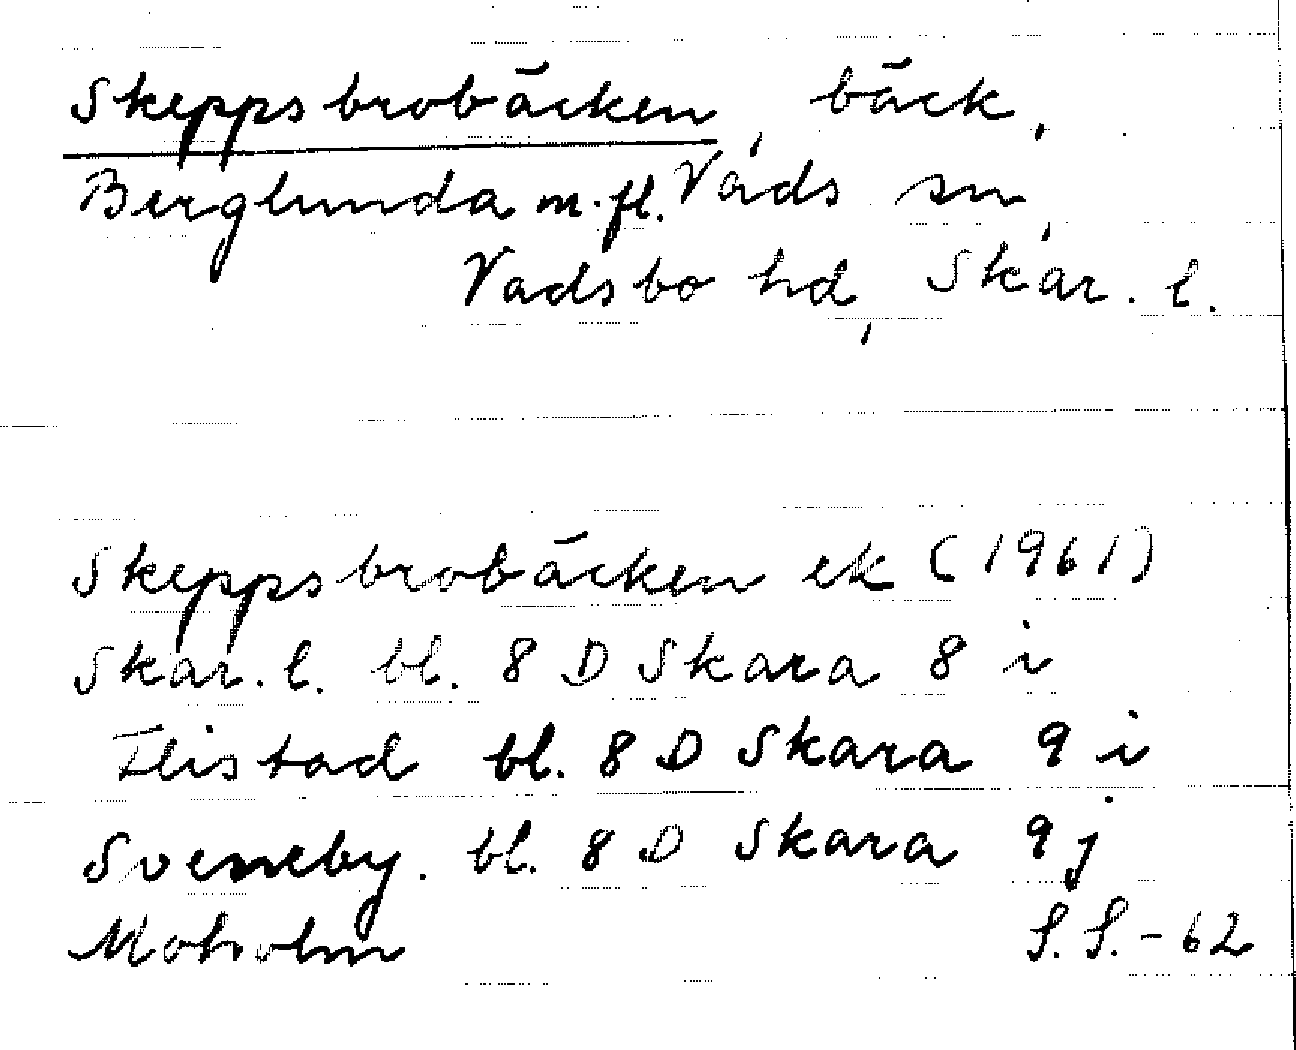 Skeppsbrobäcken, bäck,
Berglunda m.fl. Väds sn,
Vadsbo hd, Skar. l.
Skeppsbrobäcken ek (1961)
Skar. l. bl. 8 D Skara 8 i
Flistad bl. 8 D Skara 9 i
Sveneby. bl. 8 D Skara 9 j
Moholm S. S. - 62